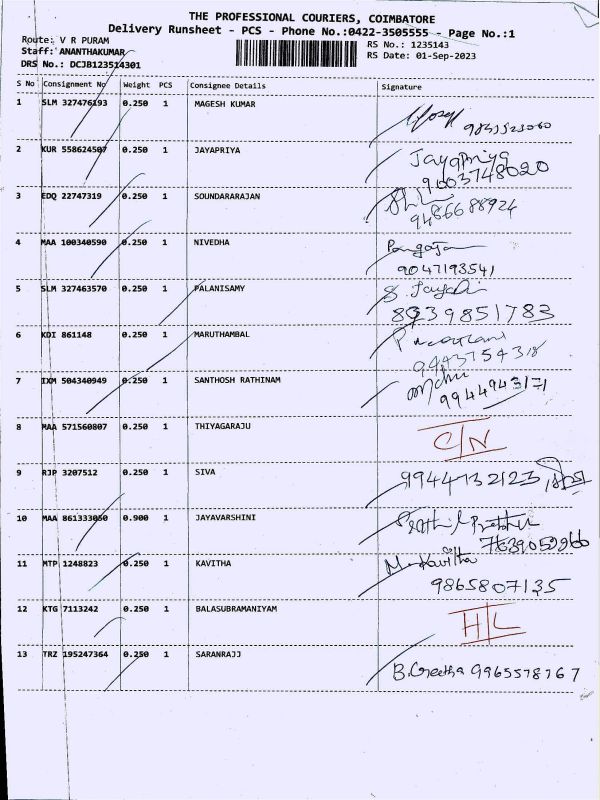 THE PROFESSIONAL COURIERS, COIMBATORE
Delivery Runsheet - PCS - Phone No.:0422-3505555 - Page No.:1
Route: V R PURAM
Staff: ANANTHAKUMAR
DRS No.: DCJB123514301
RS No.: 1235143
RS Date: 01-Sep-2023
S No Consignment No Weight PCS Consignee Details Signature
1 SLM 327476193 0.250 1 MAGESH KUMAR
2 KUR 558624507 0.250 1 JAYAPRIYA Jayapriya
9003748020
3 EDQ 22747319 0.250 1 SOUNDARARAJAN
9486688924
4 MAA 100340590 0.250 1 NIVEDHA
9047193541
5 SLM 327463570 0.250 1 PALANISAMY
8939851783
6 KDI 861148 0.250 1 MARUTHAMBAL
9443754318
7 IXM 504340949 0.250 1 SANTHOSH RATHINAM
9944943171
8 MAA 571560807 0.250 1 THIYAGARAJU C/N
9 RJP 3207512 0.250 1 SIVA 9944732123
10 MAA 861333050 0.900 1 JAYAVARSHINI
7639052266
11 MTP 1248823 0.250 1 KAVITHA M. Kavitha
9865807135
12 KTG 7113242 0.250 1 BALASUBRAMANIYAM H/L
13 TRZ 195247364 0.250 1 SARANRAJJ B. Geetha 9965578767